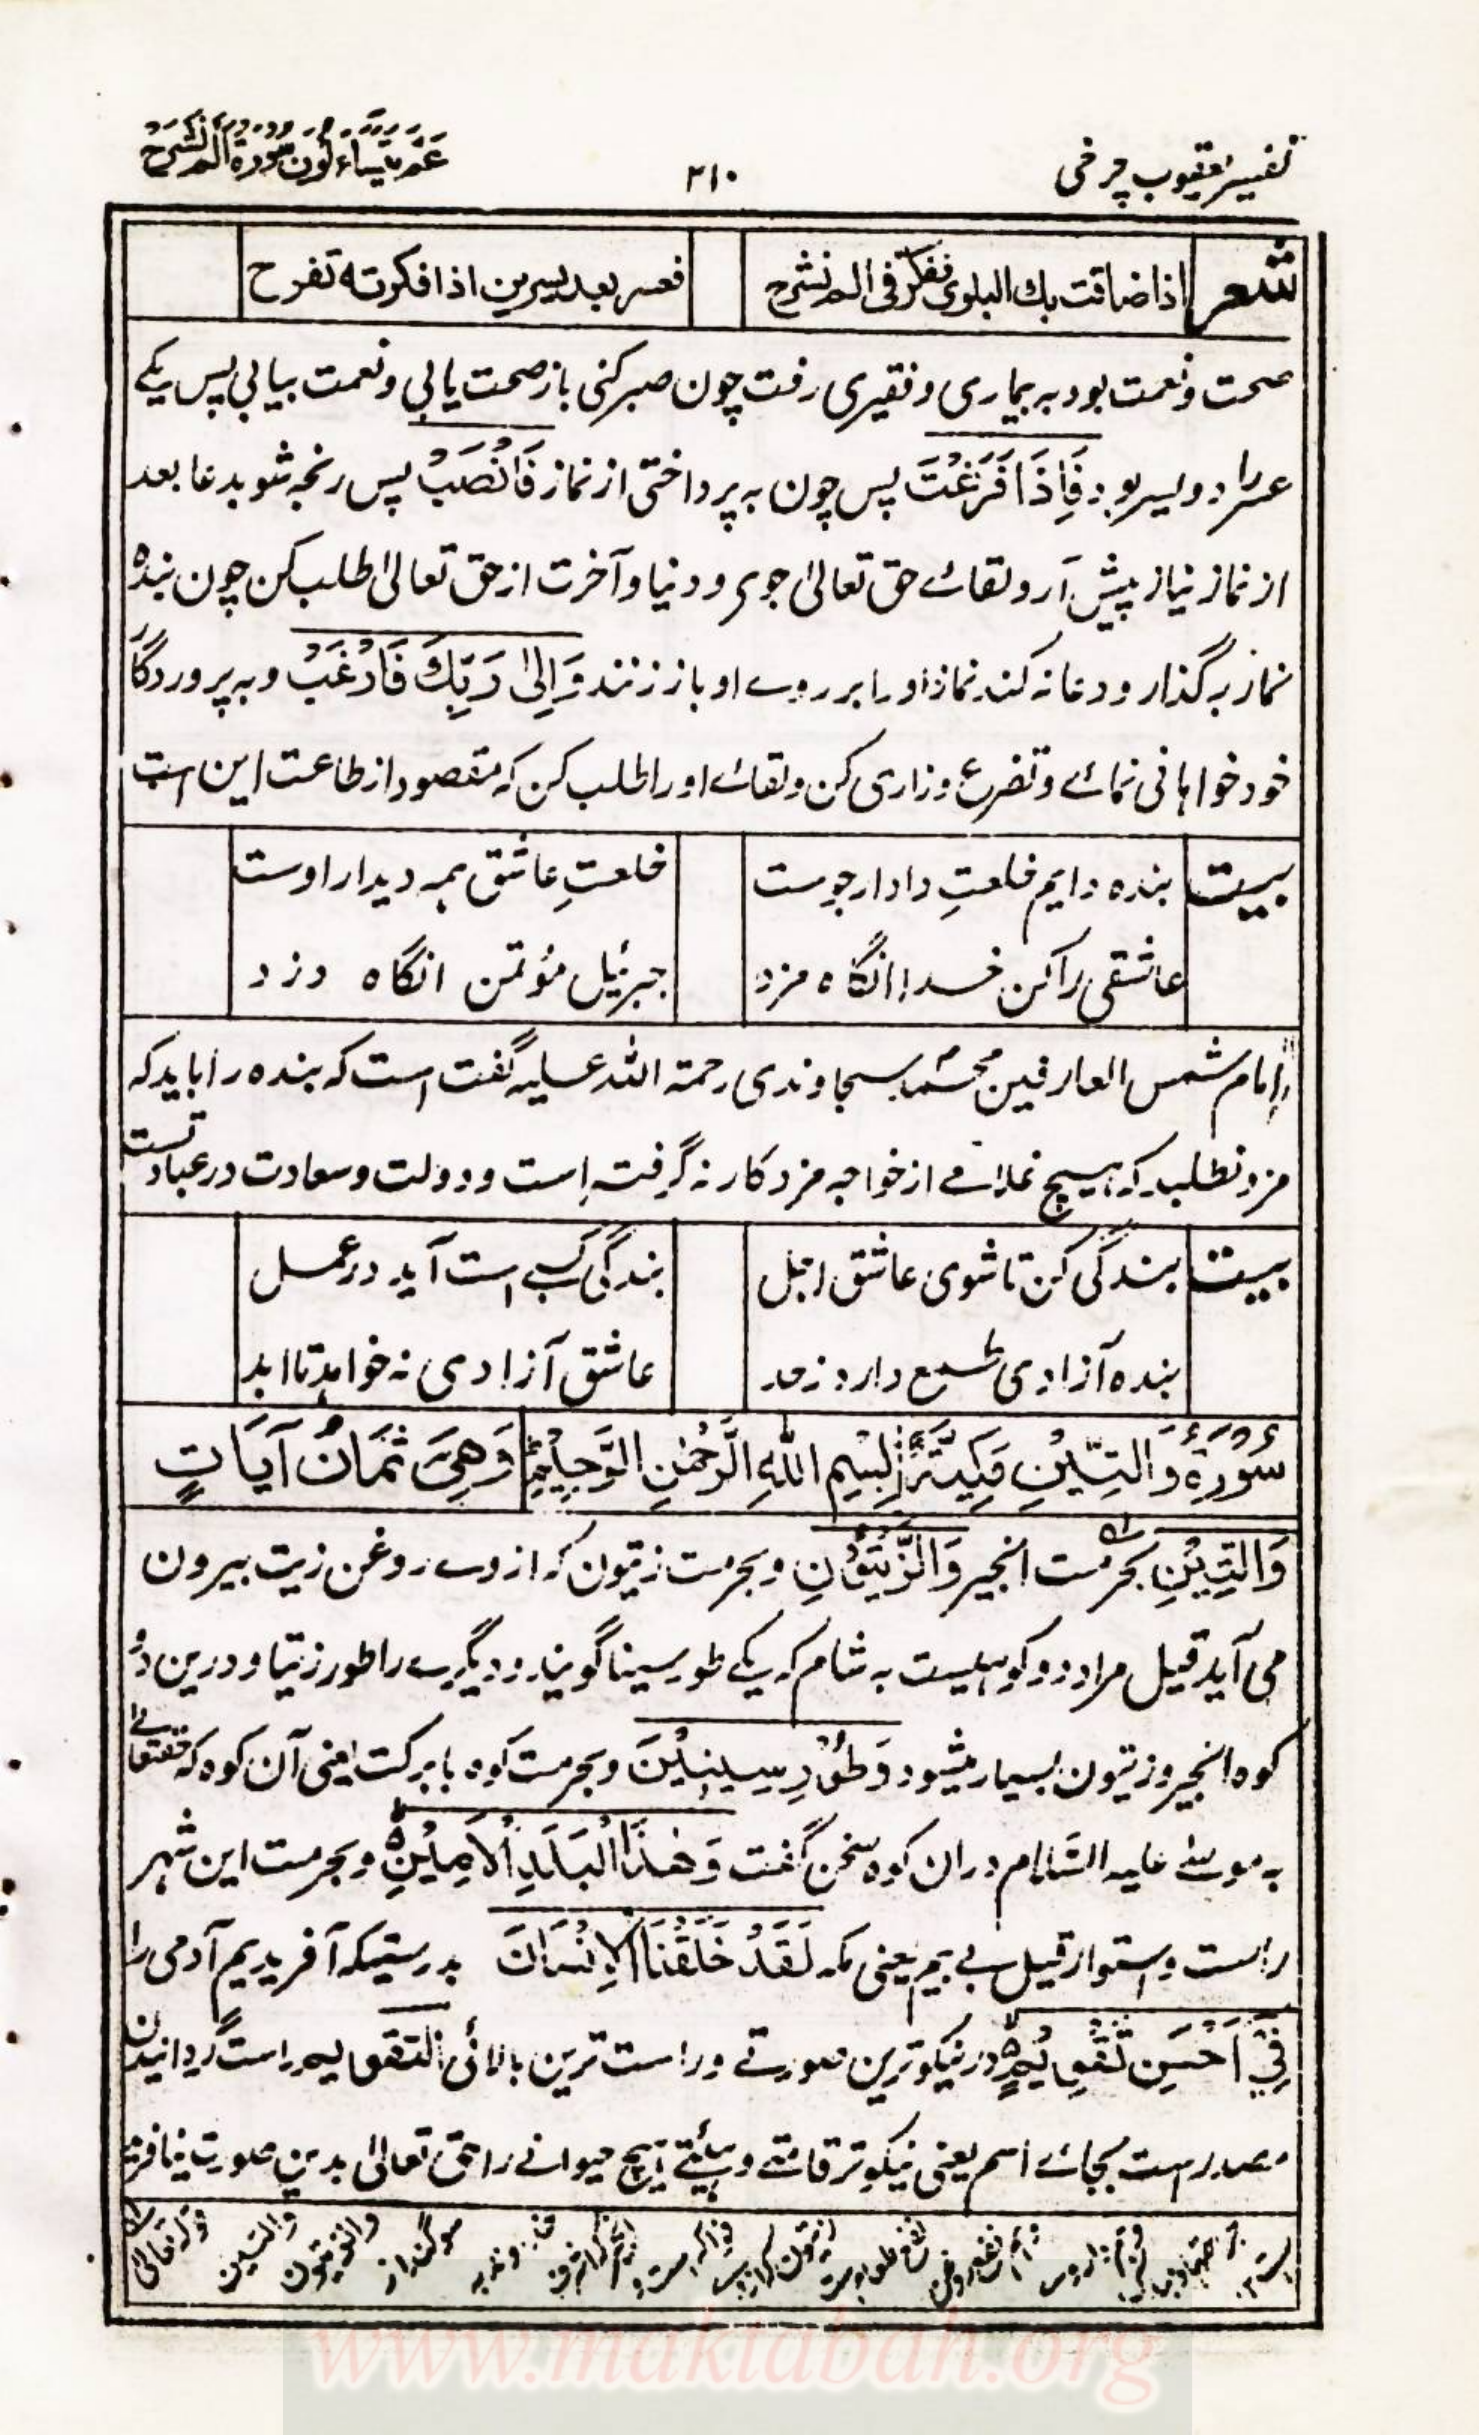 تفسیر یعقوب چرخی
۲۱۰
عَمَّ یَتَسَاءَلُونَ سُورَةُ أَلَمْ نَشْرَحْ
شعر اذا ضاقت بك البلوی تفکر فی الم نشرح فعسر بعد یسرین اذا فکرته تفرح
صحت و نعمت بود به بیماری و نقیری رفت چون صبر کنی باز صحت یابی و نعمت بیابی پس یکے
عسر را دو یسر بود فَاِذَا فَرَغْتَ پس چون به پرداختی از نماز فَانْصَبْ پس رنجه شو بدعا بعد
از نماز نیاز پیش آر و لقائے حق تعالیٰ جوی و دنیا و آخرت از حق تعالیٰ طلب کن چون بنده
نماز بگذارد و دعا نه کند نماز او را بر روے او باز زنند وَاِلیٰ رَبِّكَ فَارْغَبْ و به پروردگار
خود خواهانی نمائے و تضرع و زاری کن و لقائے او را طلب کن که مقصود از طاعت این است
بیت بنده دایم خلعتِ دادار جوست خلعتِ عاشق همه دیدار اوست
عاشقی را کن خدا انگاه مزد جبرئیل مؤتمن انگاه دزد
امام شمس العارفین محمد سجاوندی رحمة الله علیه گفت است که بنده را باید که
مزد نطلبد که هیچ غلامے از خواجه مزد کار نه گرفته است و دولت و سعادت در عبادتست
بیت بندگی کن تا شوی عاشق اجل بندگی کسبے است آید در عمل
بنده آزادی طمع دارد ز حد عاشق آزادی نه خواهد تا ابد
سُوْرَةُ وَالتِّیْنِ مَکِیَّةٌ بِسْمِ اللّٰهِ الرَّحْمٰنِ الرَّحِیْمِ وَهِیَ ثَمَانُ آیَاتٍ
وَالتِّیْنِ بحرمت انجیر وَالزَّیْتُوْنِ و بحرمت زیتون که از وے روغن زیت بیرون
می آید قیل مراد دو کوهیست به شام که یکے طور سینا گویند و دیگرے را طور زیتا و درین دو
کوه انجیر و زیتون بسیار میشود وَطُوْرِ سِیْنِیْنَ و بحرمت کوه با برکت یعنی آن کوه که حقتعالیٰ
به موسیٰ علیه السَّلام در ان کوه سخن گفت وَهٰذَا الْبَلَدِ الْاَمِیْنِ و بحرمت این شهر
راست و استوار قیل بے بیم یعنی مکه لَقَدْ خَلَقْنَا الْاِنْسَانَ بدرستیکه آفریدیم آدمی را
فِیْ اَحْسَنِ تَقْوِیْمٍ در نیکوترین صورتے و راست ترین بالائی التقویم راست گردانیدن
مصدر است بجائے اسم یعنی نیکوتر قامتے و هیئتے هیچ حیوانے را حق تعالیٰ بدین صورت نیافرید
قوله تعالیٰ والتین والزیتون سوگند از
www.maktabah.org